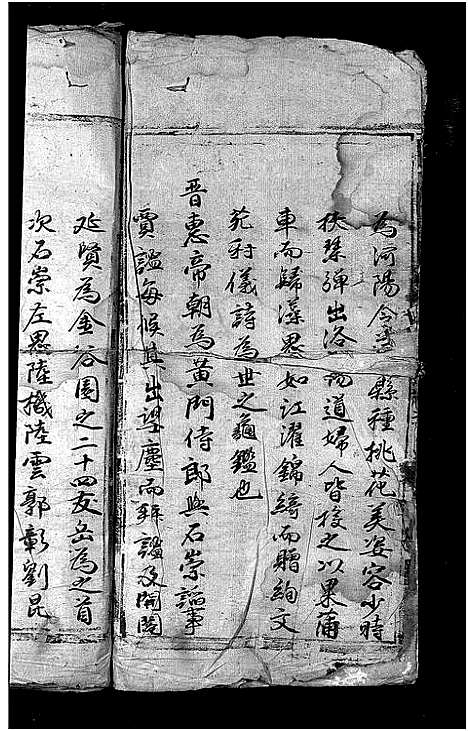 為河陽令盡縣種桃花美姿容少時
挾琴彈出洛陽道婦人皆投之以果滿
車而歸藻思如江濯錦綺而贈絢文
苑利儀詩為世之龜鑑也
晋惠帝朝為黃門侍郎與石崇謟事
賈謐每候其出望塵而拜謐及開閤
延賢為金谷園之二十四友岳為之首
次石崇左思陸機陸雲郭彰劉昆